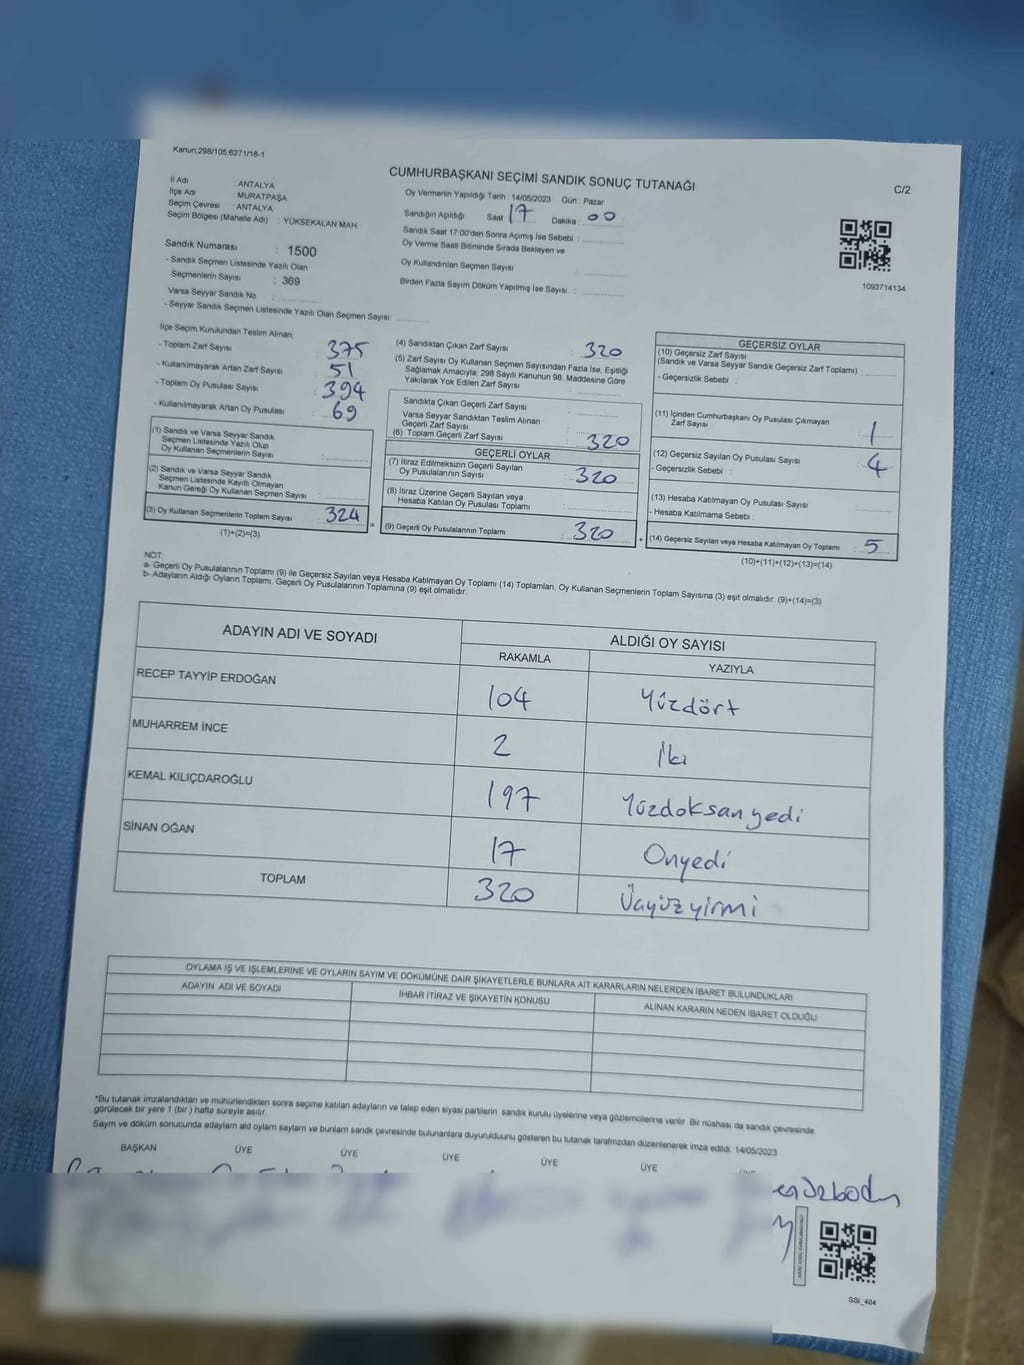 Kanun:298/105,6271/18-1
CUMHURBAŞKANI SEÇİMİ SANDIK SONUÇ TUTANAĞI
C/2
İl Adı : ANTALYA
İlçe Adı : MURATPAŞA
Seçim Çevresi : ANTALYA
Seçim Bölgesi (Mahalle Adı) : YÜKSEKALAN MAH
Sandık Numarası : 1500
- Sandık Seçmen Listesinde Yazılı Olan
Seçmenlerin Sayısı : 369
Varsa Seyyar Sandık No :
- Seyyar Sandık Seçmen Listesinde Yazılı Olan Seçmen Sayısı:
Oy Vermenin Yapıldığı Tarih : 14/05/2023 Gün : Pazar
Sandığın Açıldığı Saat 17 Dakika : 00
Sandık Saat 17:00'den Sonra Açılmış İse Sebebi :
Oy Verme Saati Bitiminde Sırada Bekleyen ve
Oy Kullandırılan Seçmen Sayısı :
Birden Fazla Sayım Döküm Yapılmış İse Sayısı :
1093714134
İlçe Seçim Kurulundan Teslim Alınan;
- Toplam Zarf Sayısı : 375
- Kullanılmayarak Artan Zarf Sayısı : 51
- Toplam Oy Pusulası Sayısı : 394
- Kullanılmayarak Artan Oy Pusulası : 69
(1) Sandık ve Varsa Seyyar Sandık
Seçmen Listesinde Yazılı Olup
Oy Kullanan Seçmenlerin Sayısı :
(2) Sandık ve Varsa Seyyar Sandık
Seçmen Listesinde Kayıtlı Olmayan
Kanun Gereği Oy Kullanan Seçmen Sayısı :
(3) Oy Kullanan Seçmenlerin Toplam Sayısı : 324
(1)+(2)=(3)
=
(4) Sandıktan Çıkan Zarf Sayısı : 320
(5) Zarf Sayısı Oy Kullanan Seçmen Sayısından Fazla İse, Eşitliği
Sağlamak Amacıyla, 298 Sayılı Kanunun 98. Maddesine Göre
Yakılarak Yok Edilen Zarf Sayısı :
Sandıkta Çıkan Geçerli Zarf Sayısı :
Varsa Seyyar Sandıktan Teslim Alınan
Geçerli Zarf Sayısı :
(6) Toplam Geçerli Zarf Sayısı : 320
GEÇERLİ OYLAR
(7) İtiraz Edilmeksizin Geçerli Sayılan
Oy Pusulalarının Sayısı : 320
(8) İtiraz Üzerine Geçerli Sayılan veya
Hesaba Katılan Oy Pusulası Toplamı :
(9) Geçerli Oy Pusulalarının Toplamı : 320
+
GEÇERSİZ OYLAR
(10) Geçersiz Zarf Sayısı
(Sandık ve Varsa Seyyar Sandık Geçersiz Zarf Toplamı) :
- Geçersizlik Sebebi :
(11) İçinden Cumhurbaşkanı Oy Pusulası Çıkmayan
Zarf Sayısı : 1
(12) Geçersiz Sayılan Oy Pusulası Sayısı : 4
- Geçersizlik Sebebi :
(13) Hesaba Katılmayan Oy Pusulası Sayısı :
- Hesaba Katılmama Sebebi :
(14) Geçersiz Sayılan veya Hesaba Katılmayan Oy Toplamı : 5
(10)+(11)+(12)+(13)=(14)
NOT:
a- Geçerli Oy Pusulalarının Toplamı (9) ile Geçersiz Sayılan veya Hesaba Katılmayan Oy Toplamı (14) Toplamları, Oy Kullanan Seçmenlerin Toplam Sayısına (3) eşit olmalıdır. (9)+(14)=(3)
b- Adayların Aldığı Oyların Toplamı, Geçerli Oy Pusulalarının Toplamına (9) eşit olmalıdır.
ADAYIN ADI VE SOYADI ALDIĞI OY SAYISI
RAKAMLA YAZIYLA
RECEP TAYYİP ERDOĞAN 104 Yüzdört
MUHARREM İNCE 2 İki
KEMAL KILIÇDAROĞLU 197 Yüzdoksanyedi
SİNAN OĞAN 17 Onyedi
TOPLAM 320 Üçyüzyirmi
OYLAMA İŞ VE İŞLEMLERİNE VE OYLARIN SAYIM VE DÖKÜMÜNE DAİR ŞİKAYETLERLE BUNLARA AİT KARARLARIN NELERDEN İBARET BULUNDUKLARI
ADAYIN ADI VE SOYADI İHBAR İTİRAZ VE ŞİKAYETİN KONUSU ALINAN KARARIN NEDEN İBARET OLDUĞU
*Bu tutanak imzalandıktan ve mühürlendikten sonra seçime katılan adayların ve talep eden siyasi partilerin sandık kurulu üyelerine veya gözlemcilerine verilir. Bir nüshası da sandık çevresinde
görülecek bir yere 1 (bir ) hafta süreyle asılır.
Sayım ve döküm sonucunda adayların ald oyların sayları ve bunların sandık çevresinde bulunanlara duyurulduunu gösteren bu tutanak tarafımızdan düzenlenerek imza edildi. 14/05/2023
BAŞKAN ÜYE ÜYE ÜYE ÜYE ÜYE
SSİ_404